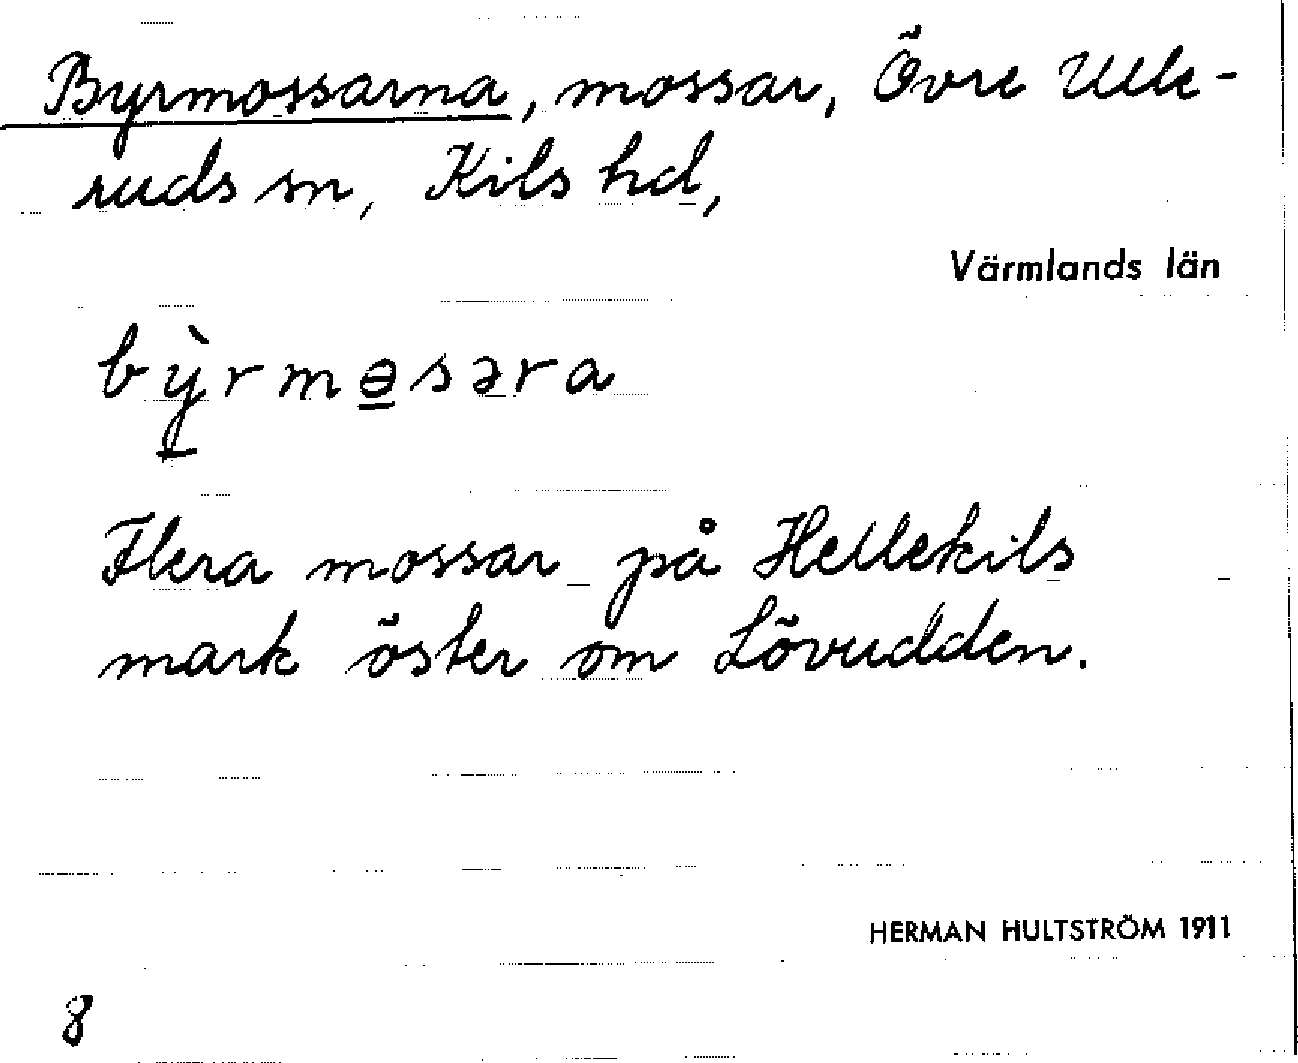 Byrmossarna, mossar, Övre Ulle-
ruds sn, Kils hd,
Värmlands län
bỳrmɵsəra
Flera mossar på Hellekils
mark öster om Lövudden.
HERMAN HULTSTRÖM 1911
8